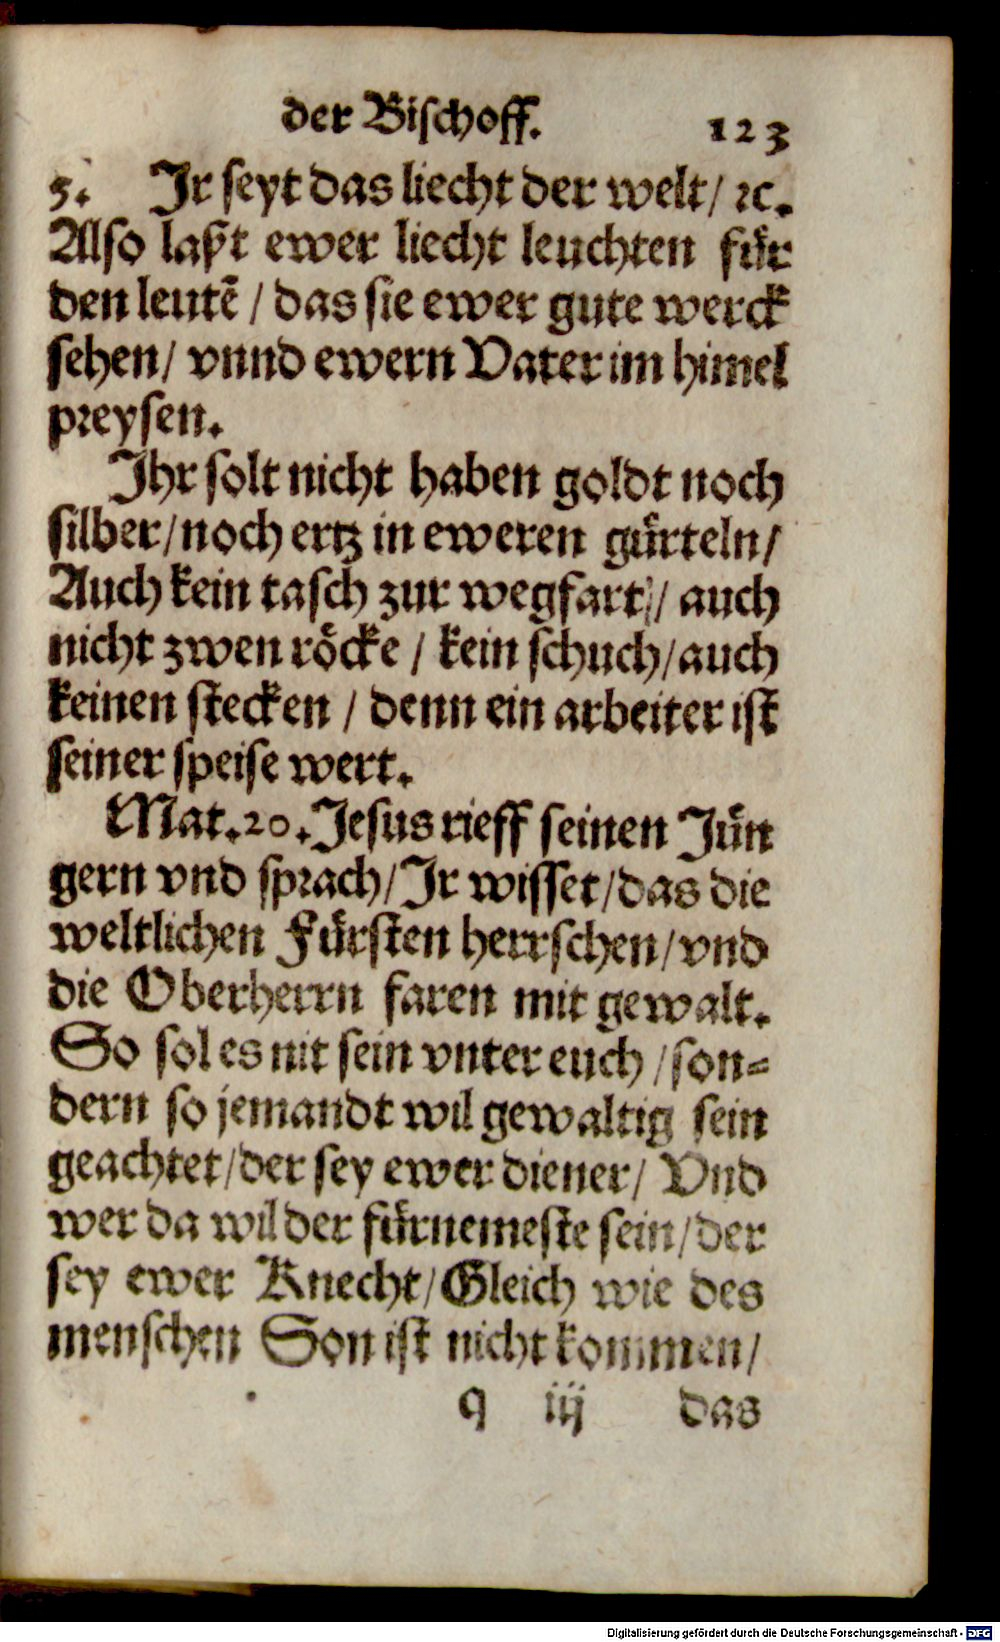 der Bischoff. 123
5. Jr seyt das liecht der welt/ ꝛc.
Also laßt ewer liecht leuchten für
den leutē / das sie ewer gute werck
sehen/ vnnd ewern Vater im himel
preysen.
Jhr solt nicht haben goldt noch
silber/noch ertz in eweren gürteln/
Auch kein tasch zur wegfart/ auch
nicht zwen röcke / kein schuch/auch
keinen stecken / denn ein arbeiter ist
seiner speise wert.
Mat.20.Jesus rieff seinen Jün
gern vnd sprach/Jr wisset/das die
weltlichen Fürsten herrschen/vnd
die Oberherrn faren mit gewalt.
So sol es nit sein vnter euch /son-
dern so jemandt wil gewaltig sein
geachtet/der sey ewer diener/ Vnd
wer da wil der fürnemeste sein/der
sey ewer Knecht/Gleich wie des
menschen Son ist nicht kommen/
q iij das
Digitalisierung gefördert durch die Deutsche Forschungsgemeinschaft - DFG